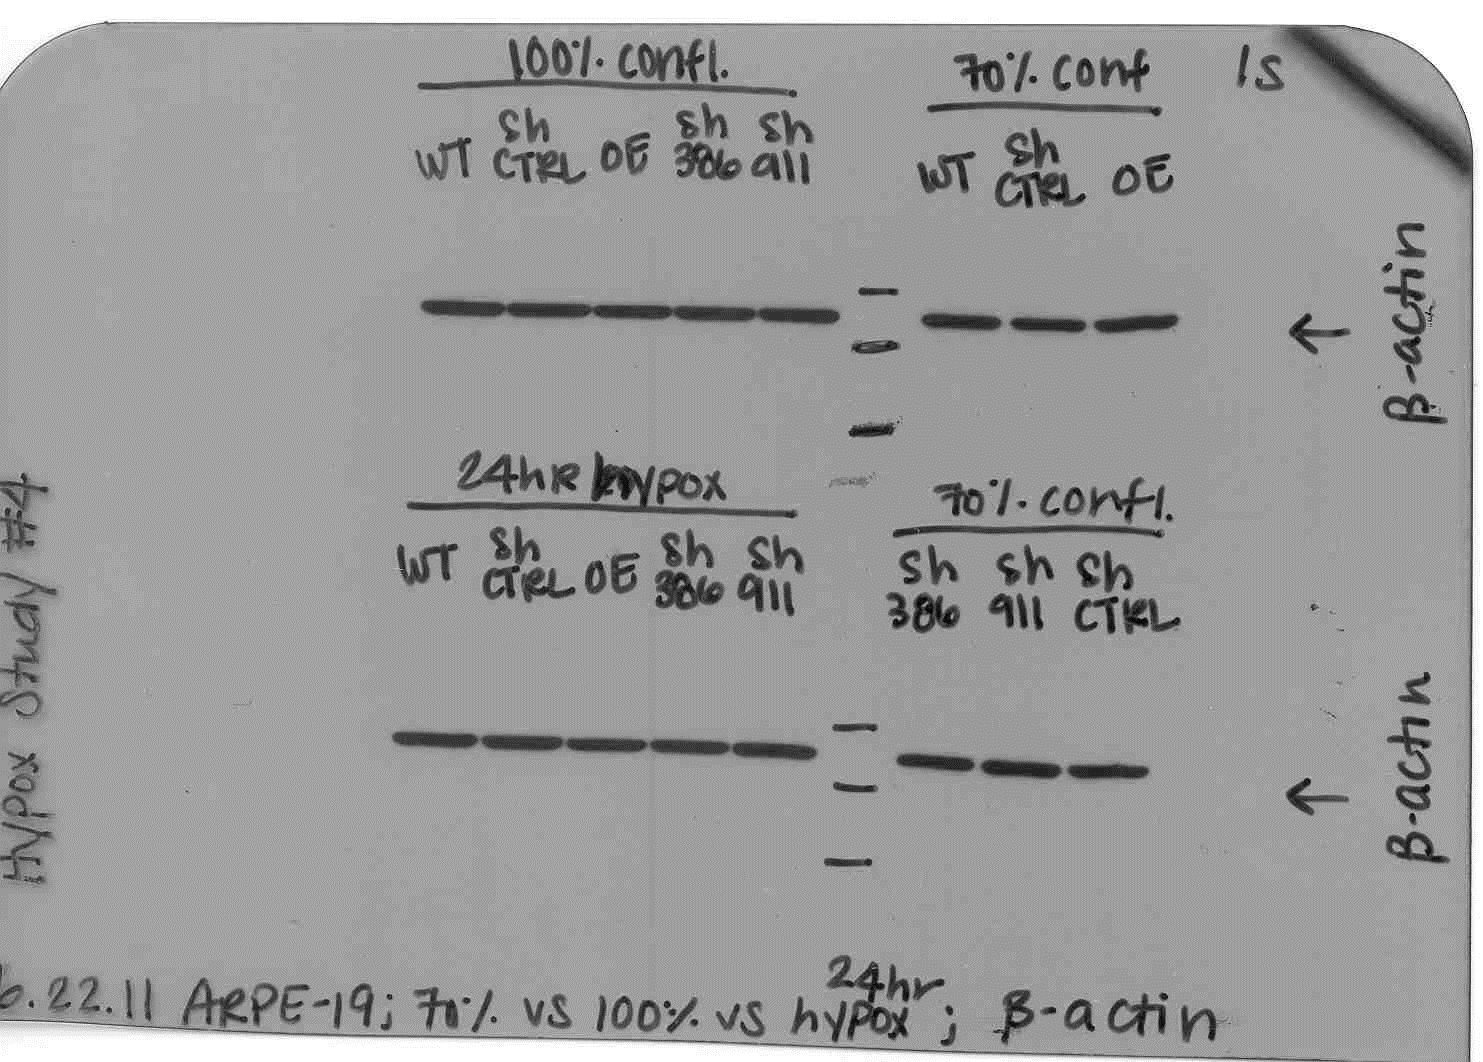 100% confl.
70% conf
1s
WT sh CTRL OE sh 386 sh 911
WT sh CTRL OE
β-actin
24hr hypox
70% confl.
WT sh CTRL OE sh 386 sh 911
sh 386 sh 911 sh CTRL
β-actin
Hypox Study #4
6.22.11 ARPE-19; 70% vs 100% vs 24hr hypox; β-actin